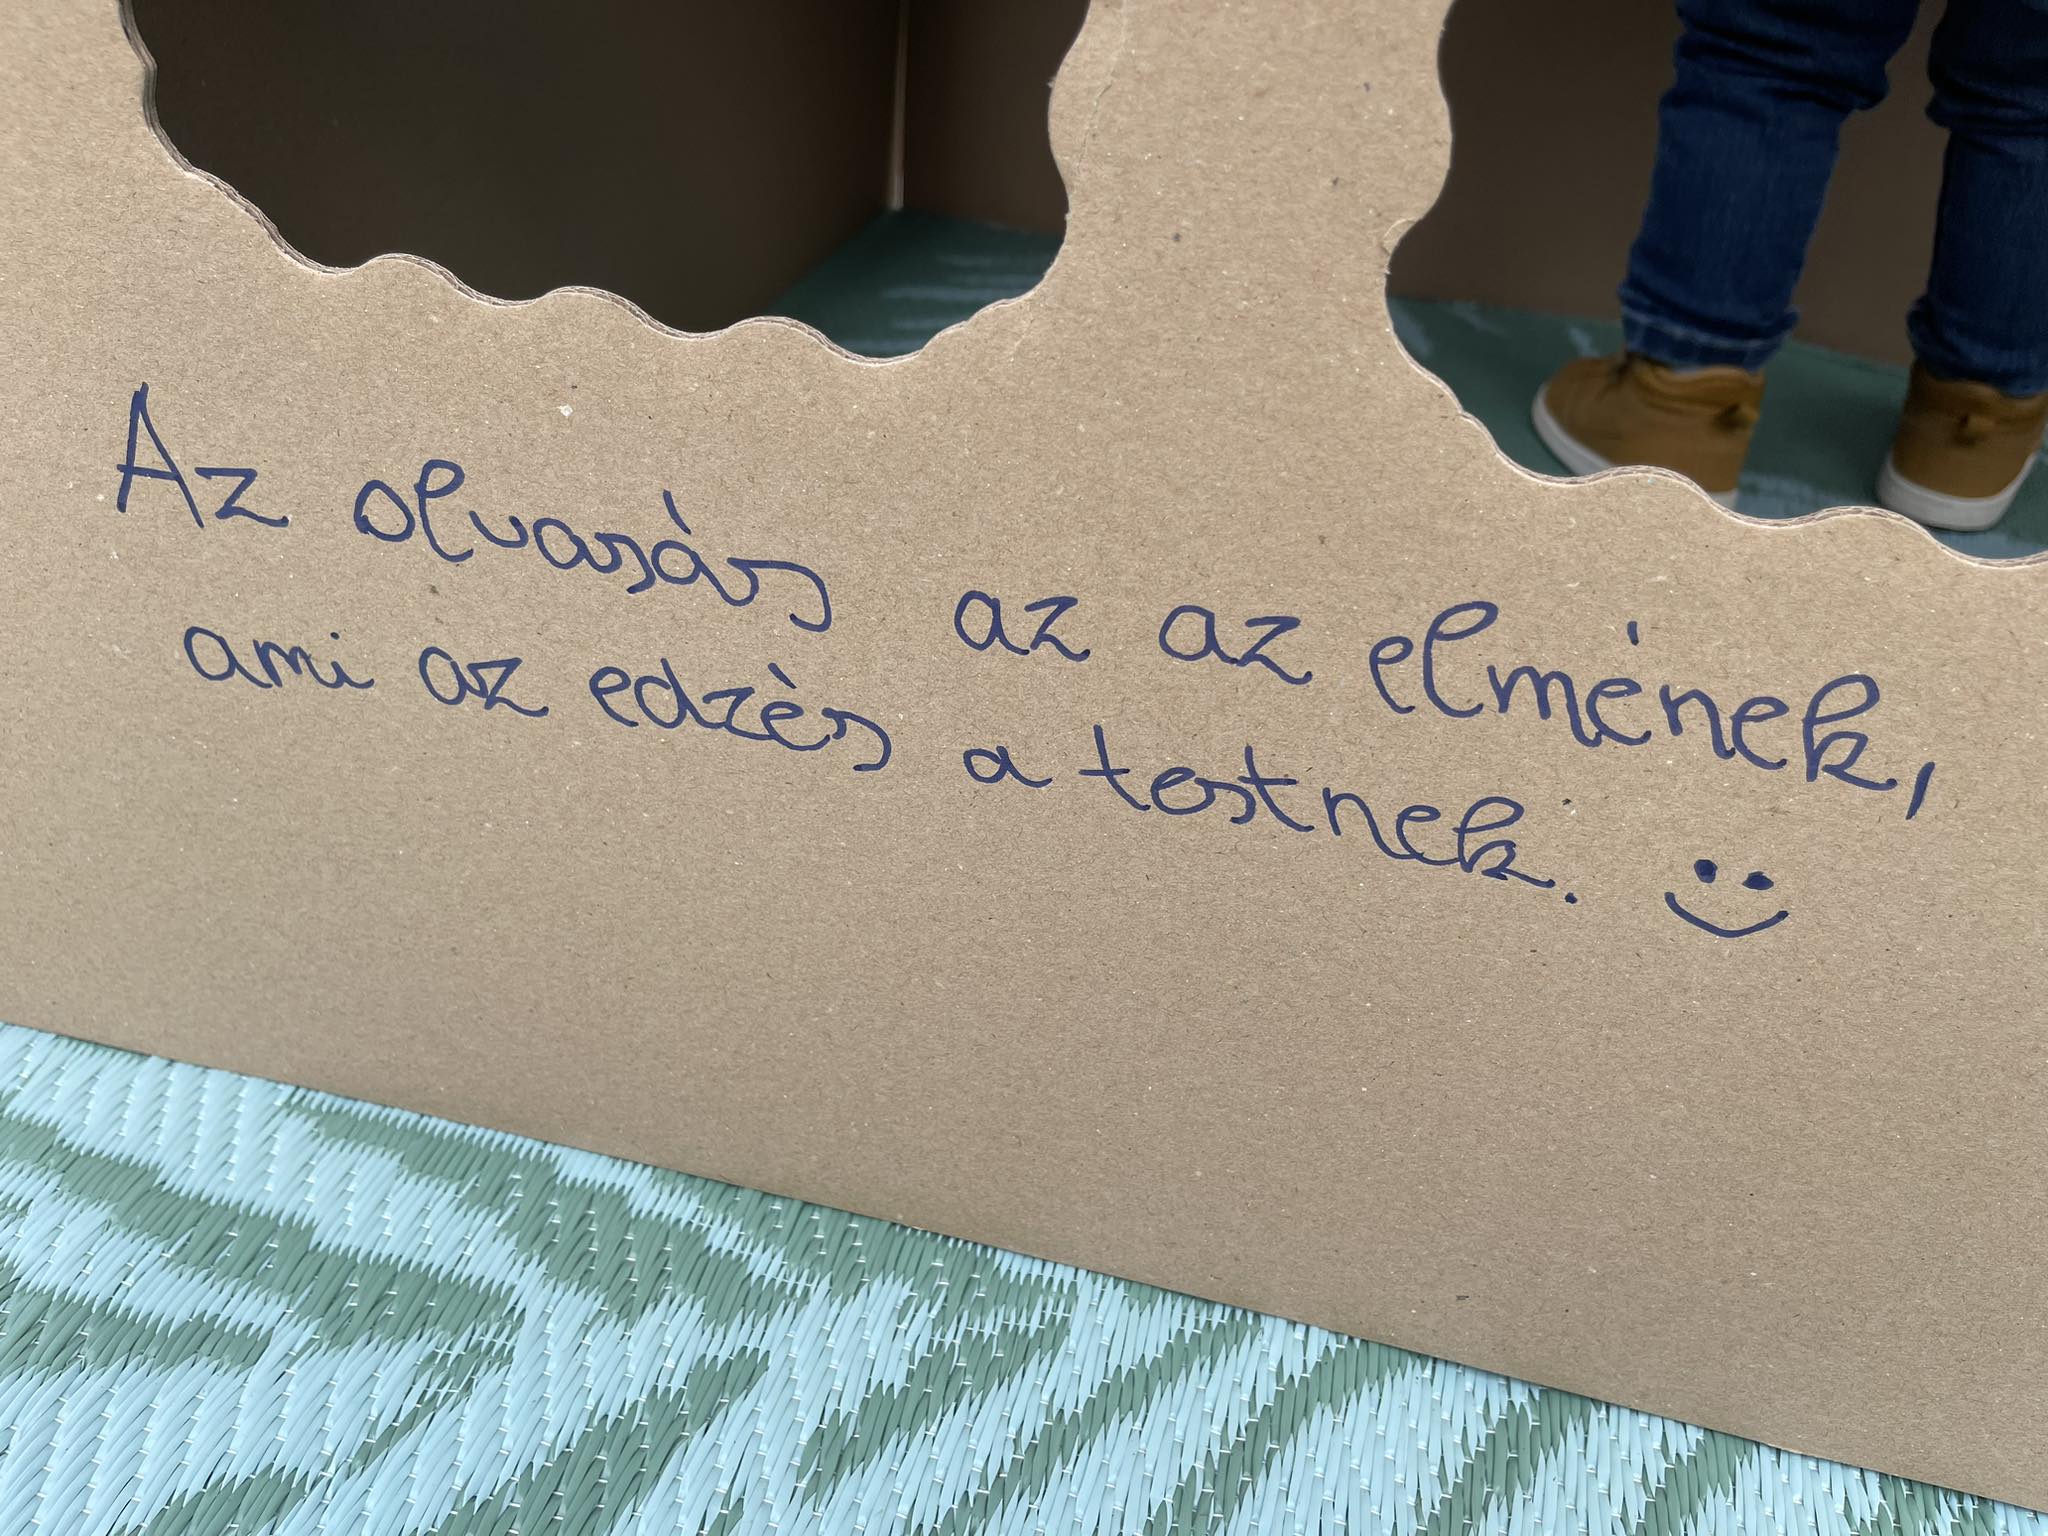 Az olvasás az az elmének,
ami az edzés a testnek. :)